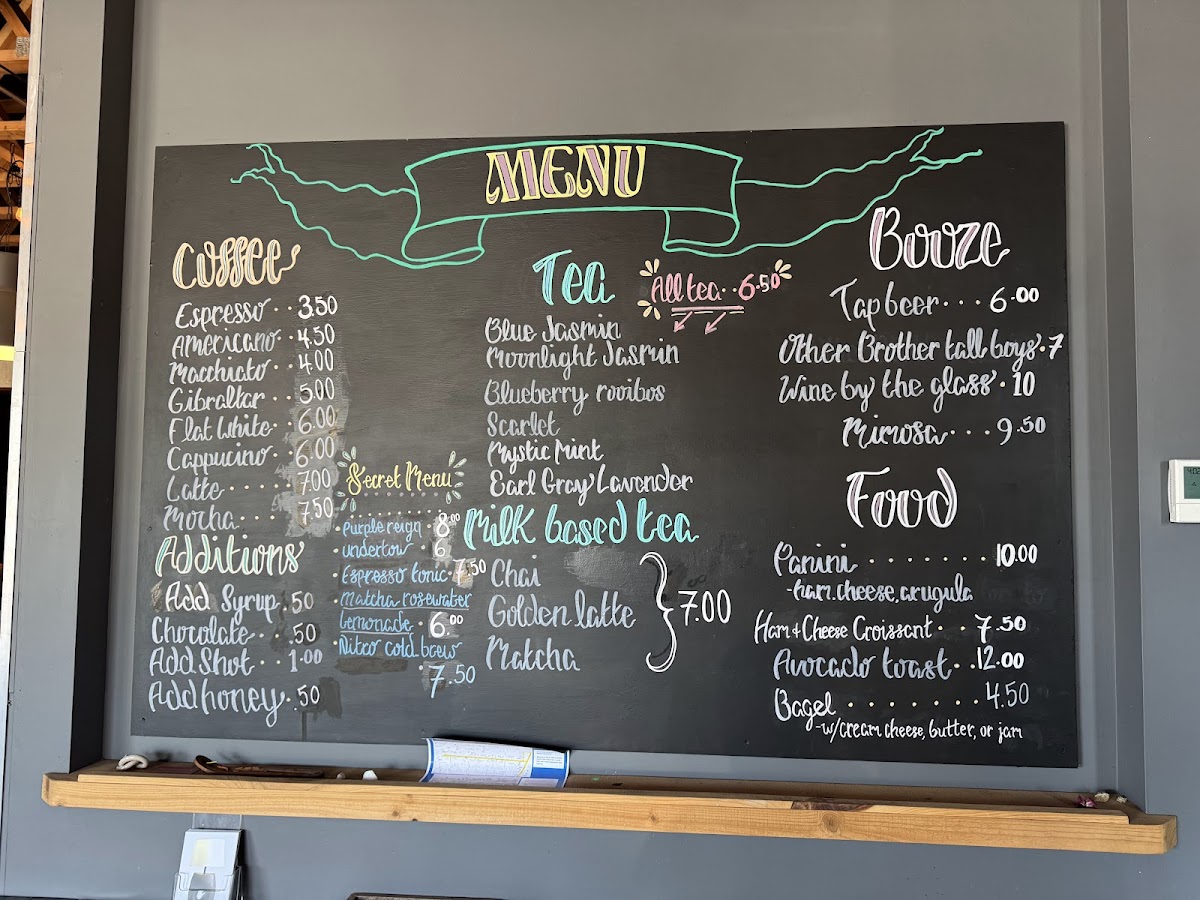 MENU
Coffee
Espresso . . 3.50
Americano . . 4.50
Macchiato . . 4.00
Gibraltar . . 5.00
Flat White . . 6.00
Cappucino . . 6.00
Latte . . . . . 7.00
Mocha . . . . 7.50
Additions
Add Syrup . 50
Chocolate . . . 50
Add Shot . . 1.00
Add honey . . 50
Secret Menu
Purple reign . 8.00
undertow . 6
Espresso tonic . 7.50
Matcha rosewater
Lemonade . 6.00
Nitro cold brew
. 7.50
Tea
All tea . . 6.50
Blue Jasmin
Moonlight Jasmin
Blueberry rooibos
Scarlet
Mystic Mint
Earl Gray Lavender
Milk based tea
Chai
Golden latte } 7.00
Matcha
Booze
Tap beer . . . 6.00
Other Brother tall boys . 7
Wine by the glass . 10
Mimosa . . . 9.50
Food
Panini . . . . . . . 10.00
-ham, cheese, arugula
Ham & Cheese Croissant . . 7.50
Avocado toast . . 12.00
Bagel . . . . . . . 4.50
-w/cream cheese, butter, or jam